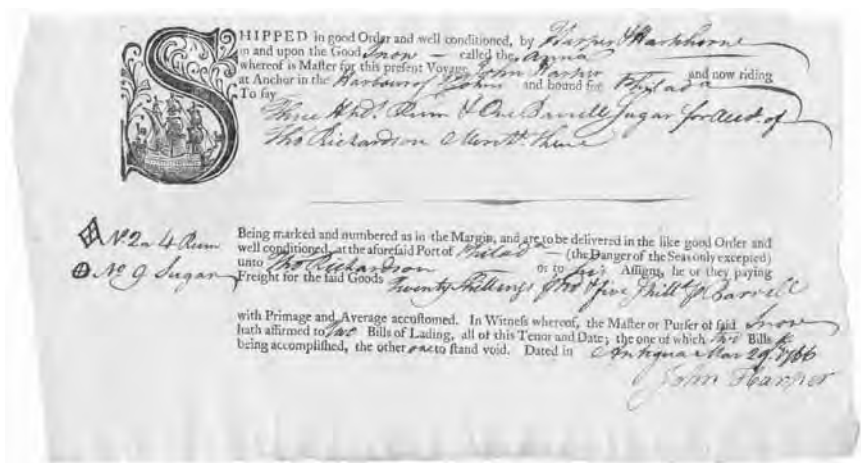 SHIPPED in good Order and well conditioned, by Harper & Hartshorne
in and upon the Good Snow called the Anna
whereof is Maſter for this preſent Voyage John Harper and now riding
at Anchor in the Harbour of St Johns and bound for Philada
To ſay
Three Hhds. Rum & One Barrell Sugar for Acct. of
Tho Richardson Mercht. there
Being marked and numbered as in the Margin, and are to be delivered in the like good Order and
Nº. 2 a 4 Rum well conditioned, at the aforeſaid Port of Philada (the Danger of the Seas only excepted)
Nº 9 Sugar unto Tho Richardson or to his Aſſigns, he or they paying
Freight for the ſaid Goods Twenty Shillings Hhd & five Shills Barrell
with Primage and Average accuſtomed. In Witneſs whereof, the Maſter or Purſer of ſaid Snow
hath affirmed to Two Bills of Lading, all of this Tenor and Date; the one of which two Bills
being accompliſhed, the other one to ſtand void. Dated in Antigua Mar 29. 1766
John Harper